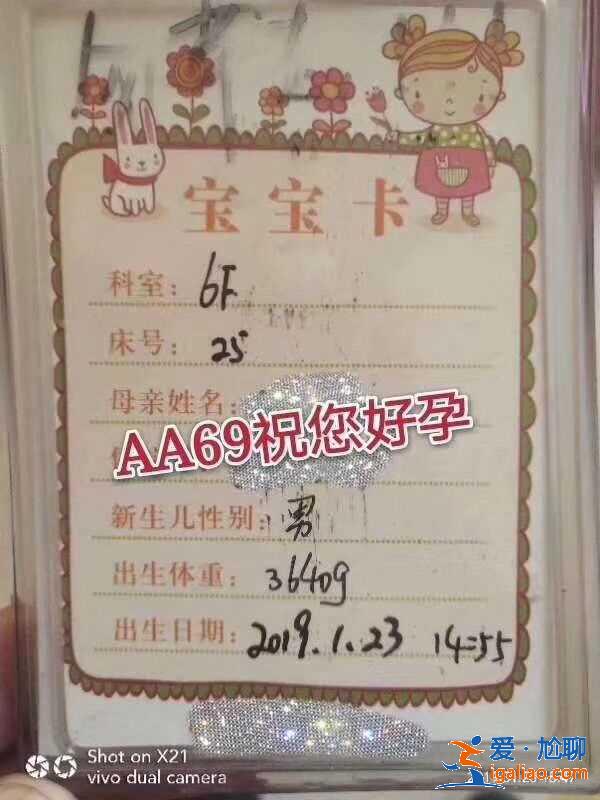 宝宝卡
科室：6F
床号：25
母亲姓名：
AA69祝您好孕
新生儿性别：男
出生体重：3640g
出生日期：2019.1.23 14:55
Shot on X21
vivo dual camera
爱·尬聊
igaliao.com